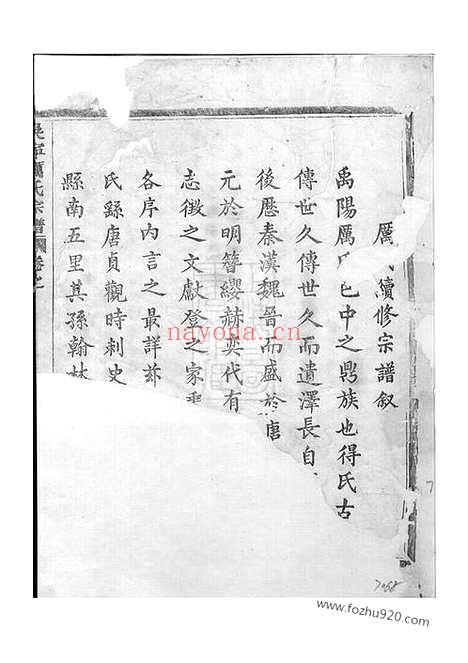 厲 續修宗譜叙
禹陽厲 邑中之鼎族也得氏古
傳世久傳世久而遺澤長自
後歷秦漢魏晉而盛於唐
元於明簪纓赫奕代有
志徵之文獻登之家乘
各序内言之最詳茲
氏繇唐貞觀時刺史
縣南五里其孫翰林
吳寧厲氏宗譜 卷之
nayona.cn
7068
www.fozhu920.com